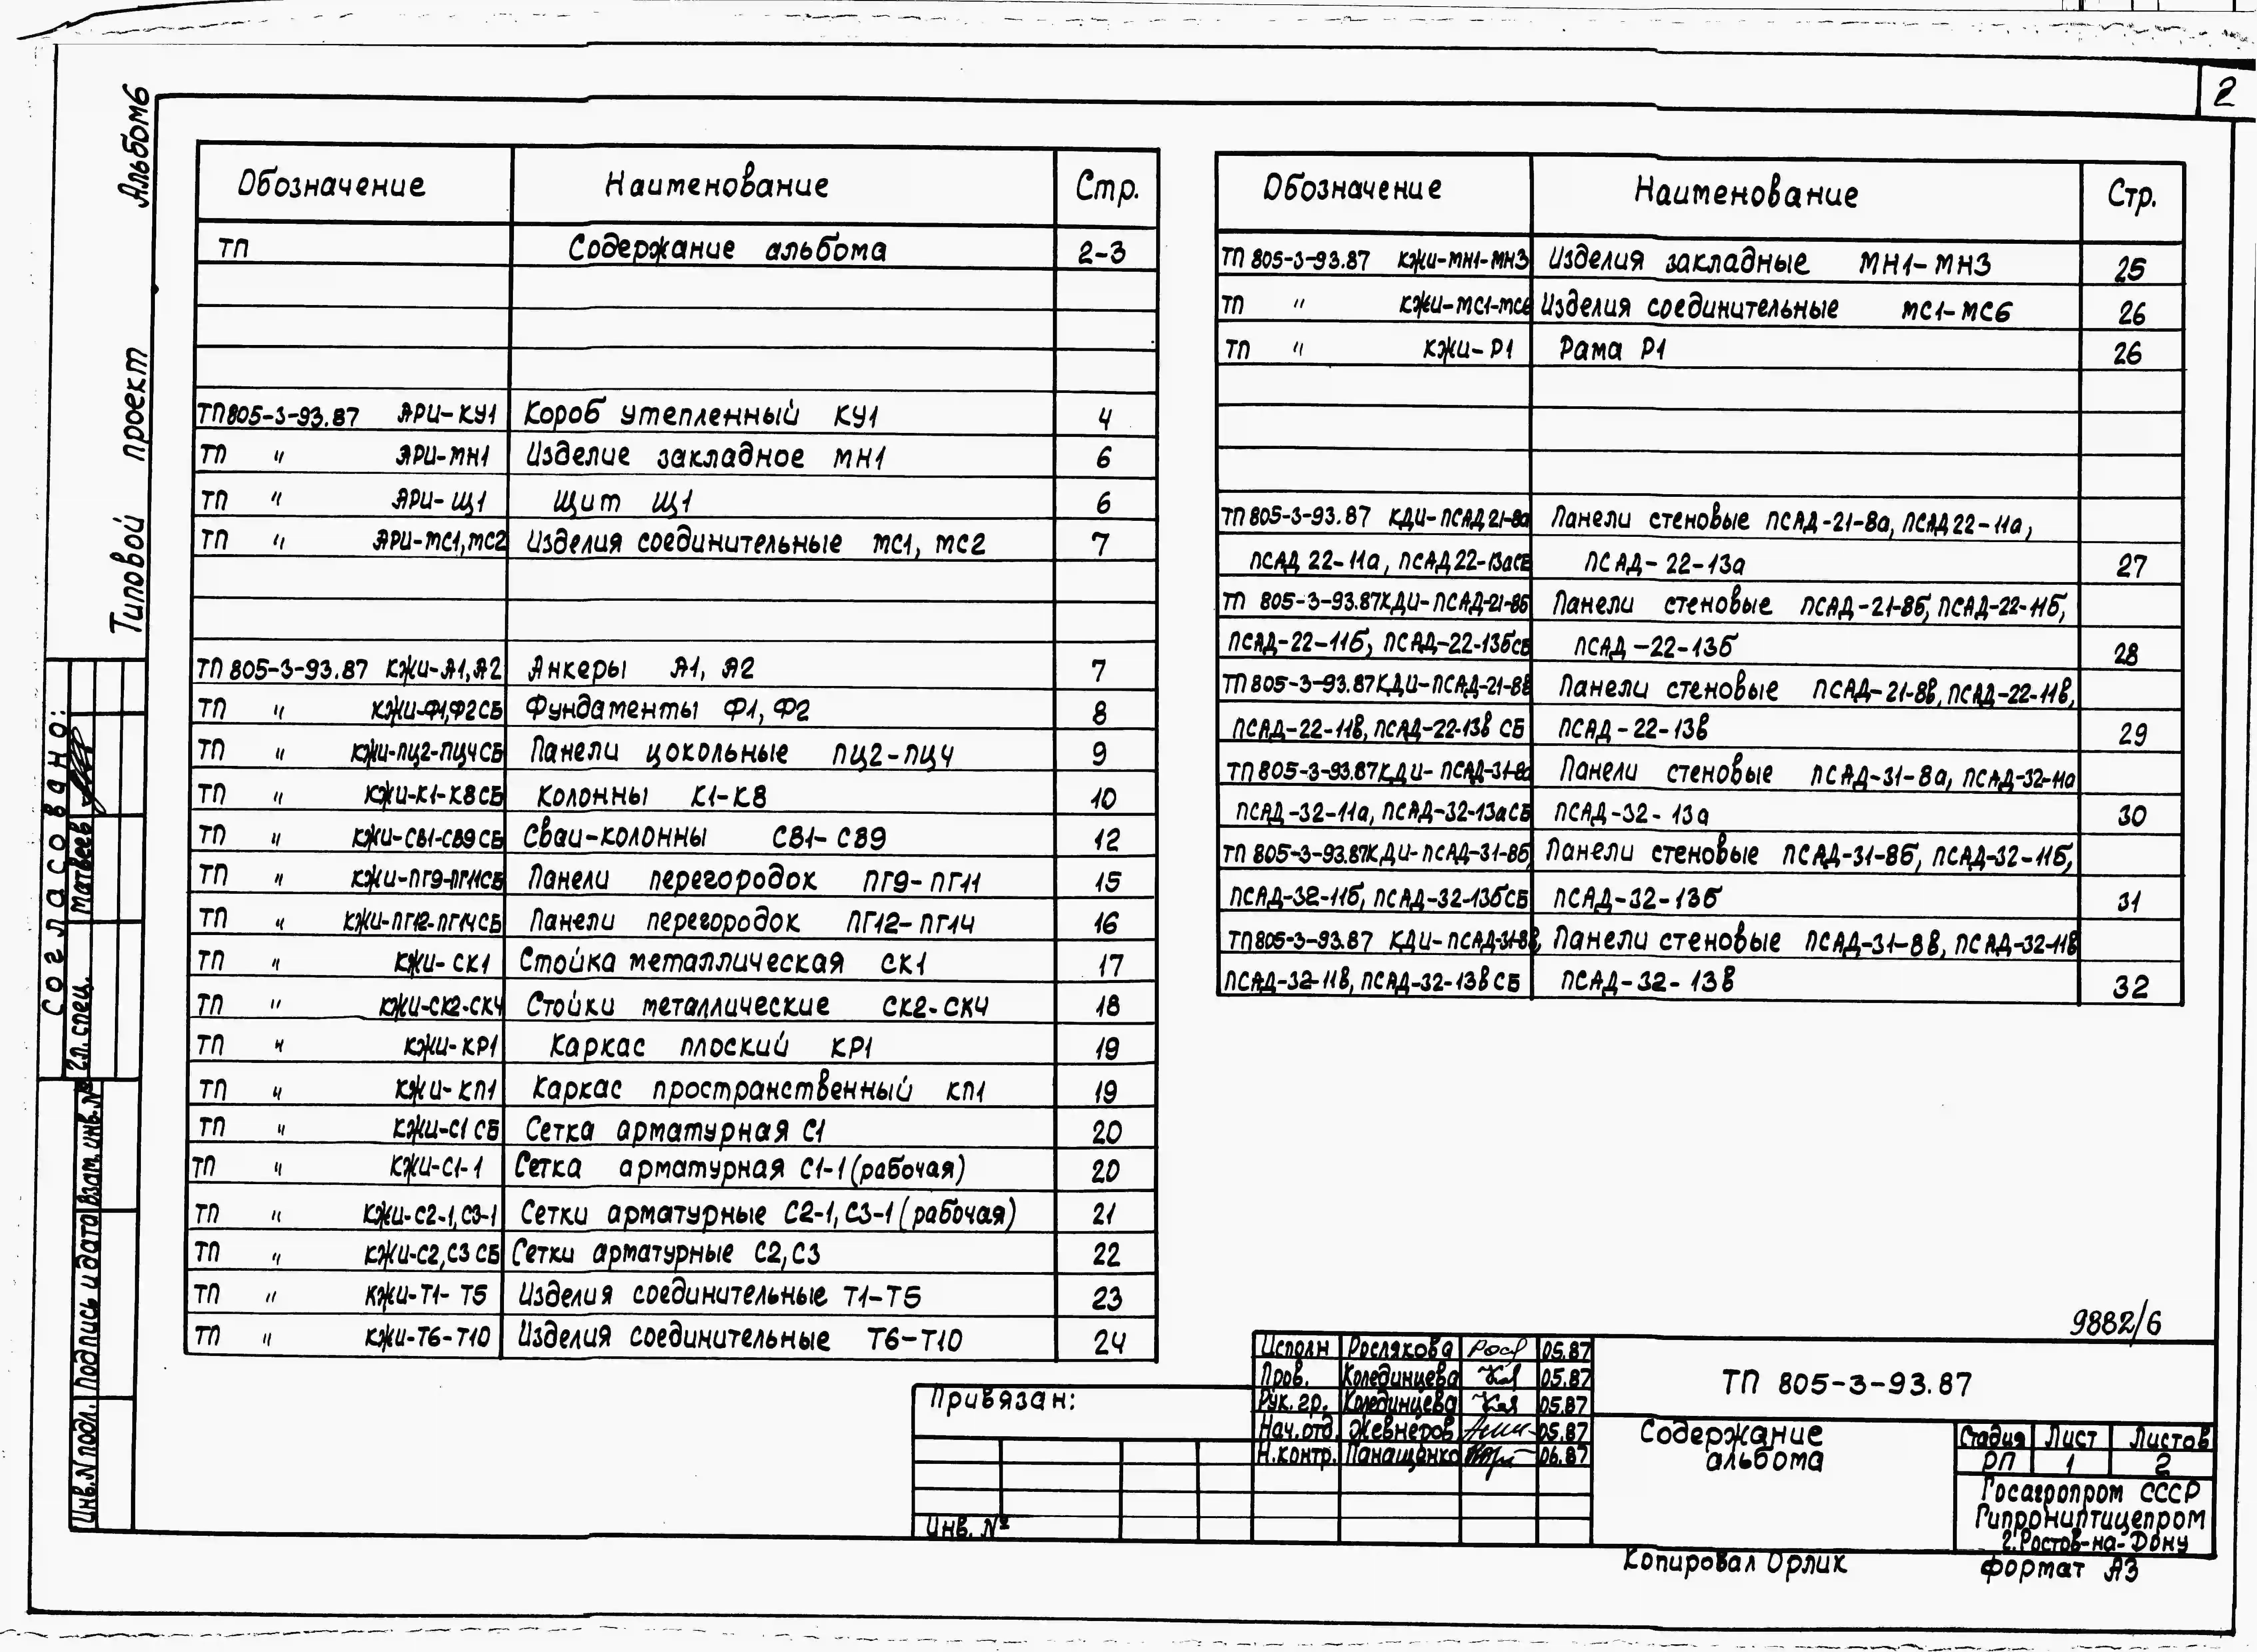 2
Альбом 6
Типовой проект
Обозначение Наименование Стр.
ТП Содержание альбома 2-3
ТП 805-3-93.87 АРИ-КУ1 Короб утепленный КУ1 4
ТП " АРИ-МН1 Изделие закладное МН1 6
ТП " АРИ-Щ1 Щит Щ1 6
ТП " АРИ-МС1, МС2 Изделия соединительные МС1, МС2 7
ТП 805-3-93.87 КЖИ-А1, А2 Анкеры А1, А2 7
ТП " КЖИ-Ф1,Ф2СБ Фундаменты Ф1, Ф2 8
ТП " КЖИ-ПЦ2-ПЦ4СБ Панели цокольные ПЦ2-ПЦ4 9
ТП " КЖИ-К1-К8СБ Колонны К1-К8 10
ТП " КЖИ-СВ1-СВ9СБ Сваи-колонны СВ1-СВ9 12
ТП " КЖИ-ПГ9-ПГ11СБ Панели перегородок ПГ9-ПГ11 15
ТП " КЖИ-ПГ12-ПГ14СБ Панели перегородок ПГ12-ПГ14 16
ТП " КЖИ-СК1 Стойка металлическая СК1 17
ТП " КЖИ-СК2-СК4 Стойки металлические СК2-СК4 18
ТП " КЖИ-КР1 Каркас плоский КР1 19
ТП " КЖИ-КП1 Каркас пространственный КП1 19
ТП " КЖИ-С1 СБ Сетка арматурная С1 20
ТП " КЖИ-С1-1 Сетка арматурная С1-1 (рабочая) 20
ТП " КЖИ-С2-1, С3-1 Сетки арматурные С2-1, С3-1 (рабочая) 21
ТП " КЖИ-С2, С3 СБ Сетки арматурные С2, С3 22
ТП " КЖИ-Т1-Т5 Изделия соединительные Т1-Т5 23
ТП " КЖИ-Т6-Т10 Изделия соединительные Т6-Т10 24
Обозначение Наименование Стр.
ТП 805-3-93.87 КЖИ-МН1-МН3 Изделия закладные МН1-МН3 25
ТП " КЖИ-МС1-МС6 Изделия соединительные МС1-МС6 26
ТП " КЖИ-Р1 Рама Р1 26
ТП 805-3-93.87 КДИ-ПСАД 21-8а Панели стеновые ПСАД-21-8а, ПСАД 22-11а,
ПСАД 22-11а, ПСАД 22-13аСБ ПСАД-22-13а 27
ТП 805-3-93.87 КДИ-ПСАД-21-8б Панели стеновые ПСАД-21-8б, ПСАД-22-11б,
ПСАД-22-11б, ПСАД-22-13бСБ ПСАД-22-13б 28
ТП 805-3-93.87 КДИ-ПСАД-21-8в Панели стеновые ПСАД-21-8в, ПСАД-22-11в,
ПСАД-22-11в, ПСАД-22-13в СБ ПСАД-22-13в 29
ТП 805-3-93.87 КДИ-ПСАД-31-8а Панели стеновые ПСАД-31-8а, ПСАД-32-11а
ПСАД-32-11а, ПСАД-32-13аСБ ПСАД-32-13а 30
ТП 805-3-93.87 КДИ-ПСАД-31-8б, Панели стеновые ПСАД-31-8б, ПСАД-32-11б,
ПСАД-32-11б, ПСАД-32-13бСБ ПСАД-32-13б 31
ТП 805-3-93.87 КДИ-ПСАД-31-8в, Панели стеновые ПСАД-31-8в, ПСАД-32-11в
ПСАД-32-11в, ПСАД-32-13в СБ ПСАД-32-13в 32
Согласовано:
Гл. спец. Матвеев
Инв. N подл. Подпись и дата Взам. инв. №
9882/6
Исполн Рослякова 05.87
Пров. Колединцева 05.87
Рук. гр. Колединцева 05.87
Нач. отд. Жевнеров 05.87
Н. контр. Панащенко 06.87
Привязан:
Инв. №
ТП 805-3-93.87
Содержание
альбома
Стадия Лист Листов
РП 1 2
Госагропром СССР
Гипрониптицепром
г. Ростов-на-Дону
Копировал Орлик Формат А3